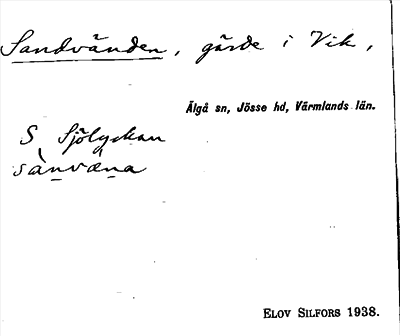 Sandvänden, gärde i Vik,
Älgå sn, Jösse hd, Värmlands län.
S Sjölyckan
sànvæna
ELOV SILFORS 1938.